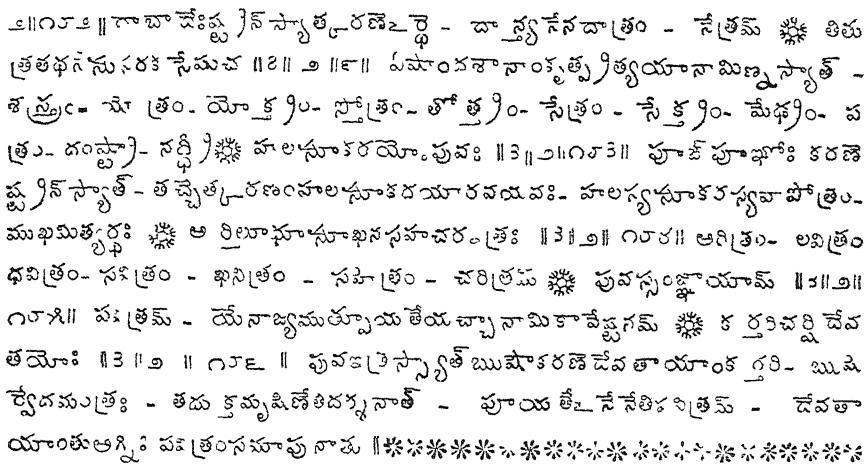 ౨॥౧౮౨॥ దాబాదేఃష్ట్రన్స్యాత్కరణేఽర్థే - దాన్త్యనేనదాత్రం - నేత్రమ్ ❋ తితు
త్రతథసిసుసరకసేషుచ ॥౭॥ ౨ ॥౯॥ ఏషాందశానాంకృత్ప్రత్యయానామిణ్నస్యాత్ -
శస్త్రం - యోత్రం - యోక్త్రం - స్తోత్రం - తోత్త్రం - సేత్రం - సేక్త్రం - మేఢ్రం - ప
త్రం - దంష్ట్రా - నద్ధ్రీ ❋ హలసూకరయోఃపువః ॥౩॥౨॥౧౮౩॥ పూఙ్పూఞోః కరణే
ష్ట్రన్స్యాత్ - తచ్చేత్కరణంహలసూకరయోరవయవః - హలస్యసూకరస్యవాపోత్రం -
ముఖమిత్యర్థః ❋ అర్తిలూధూసూఖనసహచరఇత్రః ॥౩॥౨॥ ౧౮౪॥ అరిత్రం - లవిత్రం
ధవిత్రం - సవిత్రం - ఖనిత్రం - సహిత్రం - చరిత్రమ్ ❋ పువస్సంజ్ఞాయామ్ ॥౩॥౨॥
౧౮౫॥ పవిత్రమ్ - యేనాజ్యముత్పూయతేయచ్చానామికావేష్టనమ్ ❋ కర్తరిచర్షిదేవ
తయోః ॥౩॥౨ ॥ ౧౮౬ ॥ పువఇత్రస్స్యాత్ ఋషౌకరణేదేవతాయాంకర్తరి - ఋషి
ర్వేదమంత్రః - తదుక్తమృషిణేతిదర్శనాత్ - పూయతేఽనేనేతిపవిత్రమ్ - దేవతా
యాంతుఅగ్నిః పవిత్రంసమాపునాతు ॥